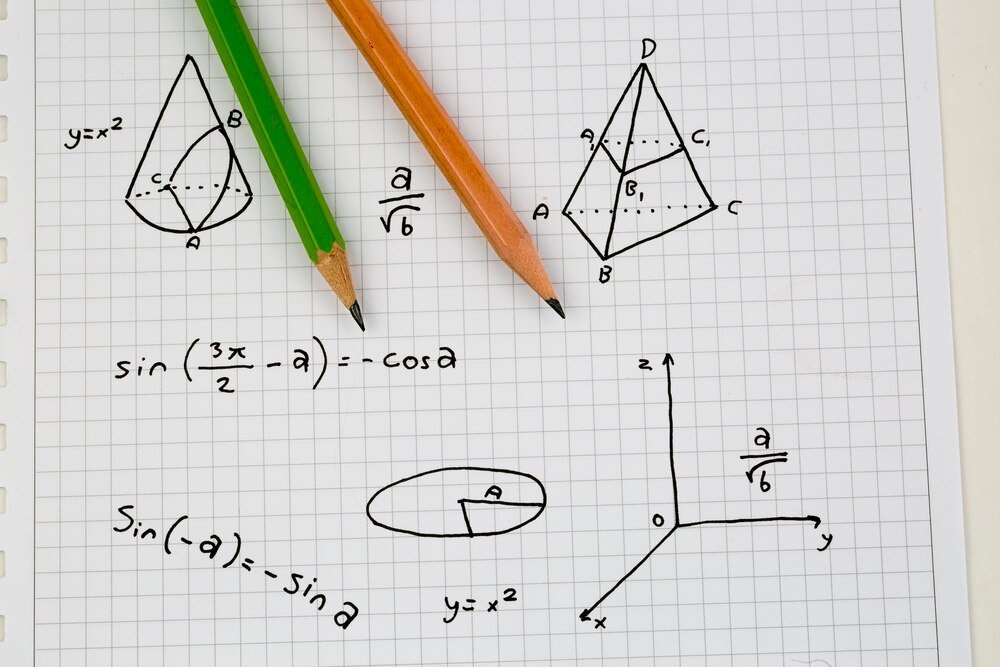 y=x²
B
C
A
a/√b
D
A₁
C₁
B₁
A
C
B
sin (3π/2 - a) = - cosa
z
a/√b
A
O
y
Sin(-a) = - sin a
y= x²
x